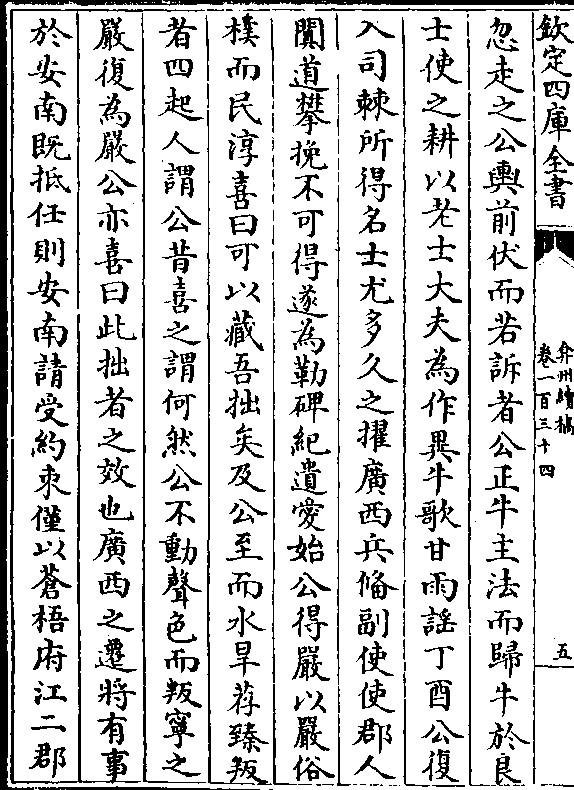 欽定四庫全書
弇州續稿
卷一百三十四
五
忽走之公輿前伏而若訴者公正牛主法而歸牛於良
士使之耕以老士大夫為作異牛歌甘雨謡丁酉公復
入司棘所得名士尤多久之擢廣西兵備副使使郡人
闐道攀挽不可得遂為勒碑紀遺愛始公得嚴以嚴俗
樸而民淳喜曰可以藏吾拙矣及公至而水旱荐臻叛
者四起人謂公昔喜之謂何然公不動聲色而叛寧之
嚴復為嚴公亦喜曰此拙者之效也廣西之遷將有事
於安南既抵任則安南請受約束僅以蒼梧府江二郡